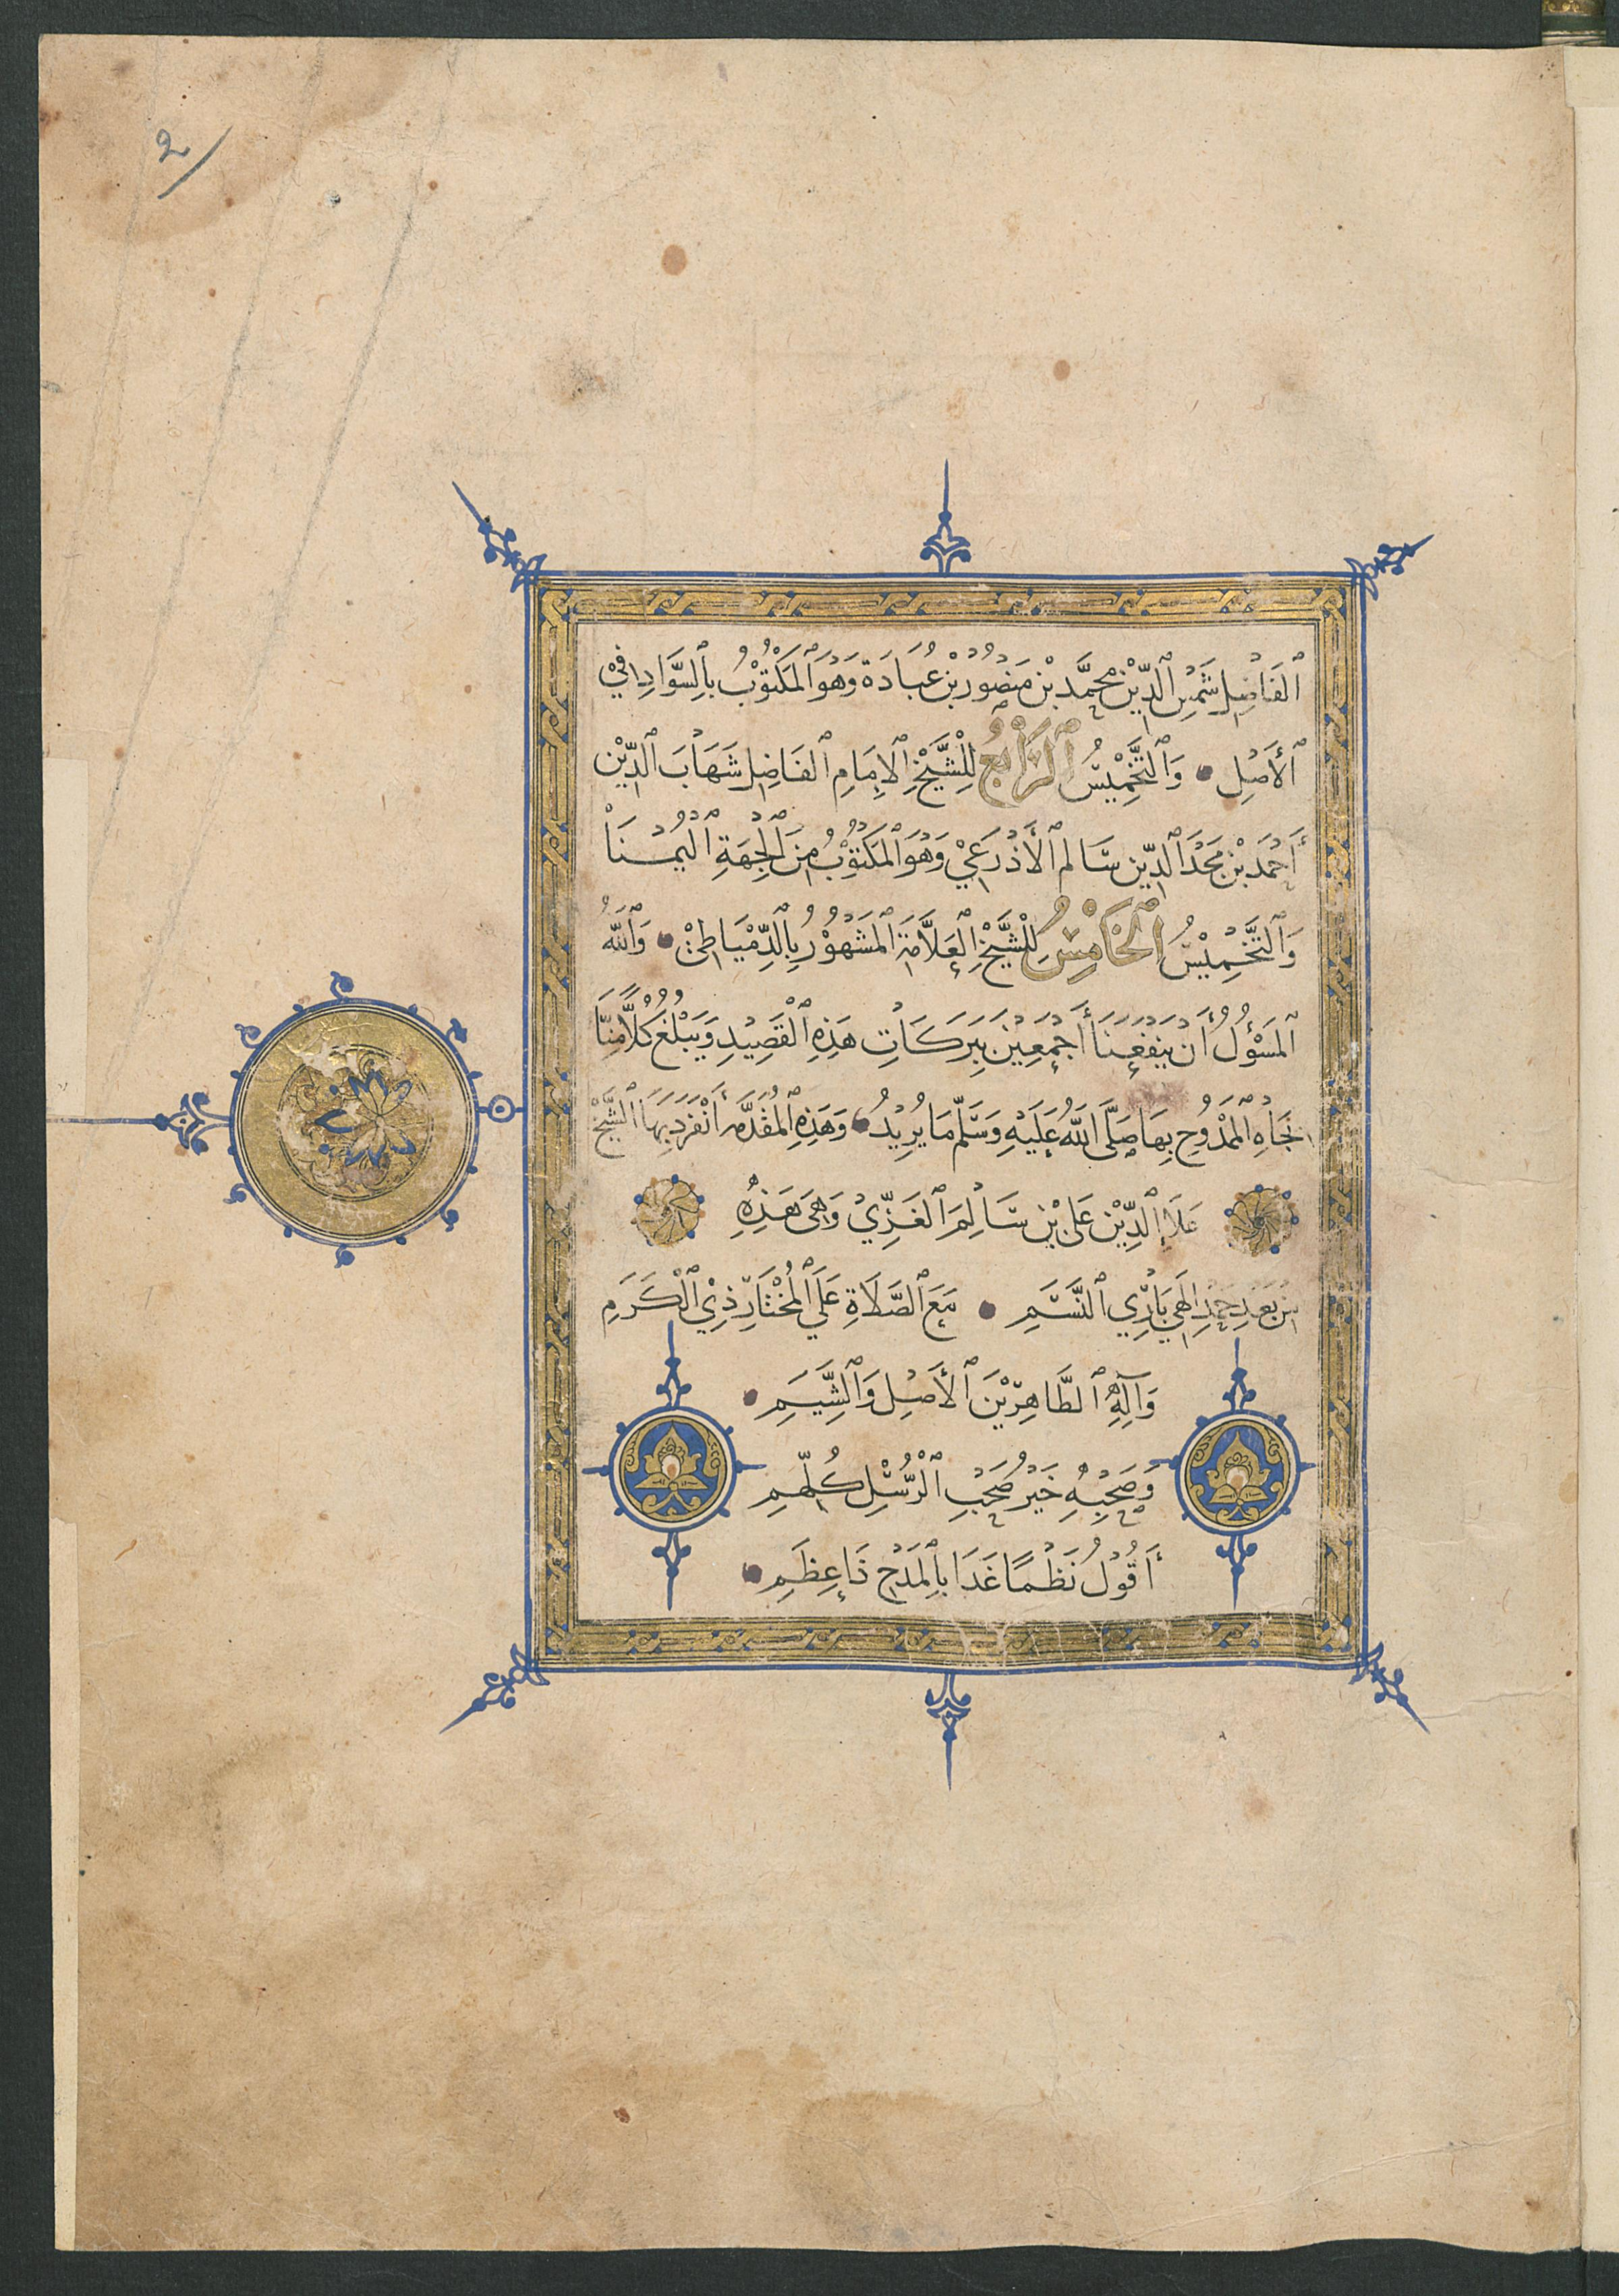 2
الفَاضِل شَمْسِ الدِّيْن مُحَمَّد بْن مَنصُوْر بْن عُبَادَة وَهُوَ المَكْتُوْبُ بِالسَّوَادِ فِيْ
الأَصْلِ وَالتَّخْمِيْسُ الرَّابِعُ لِلشَّيْخِ الإِمَامِ الفَاضِل شَهَابَ الدِّيْن
أَحْمَد بْن مَجْدَ الدِّين سَالم الأَذْرَعِيْ وَهُوَ المَكْتُوْبُ مِنَ الجِهَةِ اليُمْنَا
وَالتَّخْمِيْسُ الخَامِسُ لِلشَّيْخِ العَلاَّمَة المَشْهُوْر بِالدِّمْيَاطِيْ وَاللَّهُ
المَسْؤُلُ أَنْ يَنفَعَنَا أَجْمَعِيْنَ بِبَرَكَاتِ هَذِهِ القَصِيْدِ وَيَبْلُغَ كُلاًّ مِنَّا
بجَاهِ المَمْدُوْحِ بِهَا صَلَّى اللَّهُ عَلَيْهِ وَسَلَّمَ مَا يُرِيْدُ وَهَذِهِ المُقَدَّمَه أَنْفَرَدَ بِهَا الشَّيْخْ
عَلَاءِ الدِّيْن عَلى بْن سَالِمَ الغَزِّيْ وَهِىَ هَذِهِ
مِنْ بَعْدِ حَمْدِ إِلَهِي بَارِّي النَّسَمِ مَعَ الصَّلَاةِ عَلَي المُخْتَارِ ذِيْ الْكَرَمِ
وَآلِهِ الطَّاهِرِيْنَ الأَصْلِ وَالشِّيَمِ
وَصَحْبِهِ خَيْرُ صَحْبِ الْرُّسْلِ كُلِّهِمِ
أَقُوْلُ نَظْمًا غَدَا بِالمَدْحِ ذَا عِظَمِ